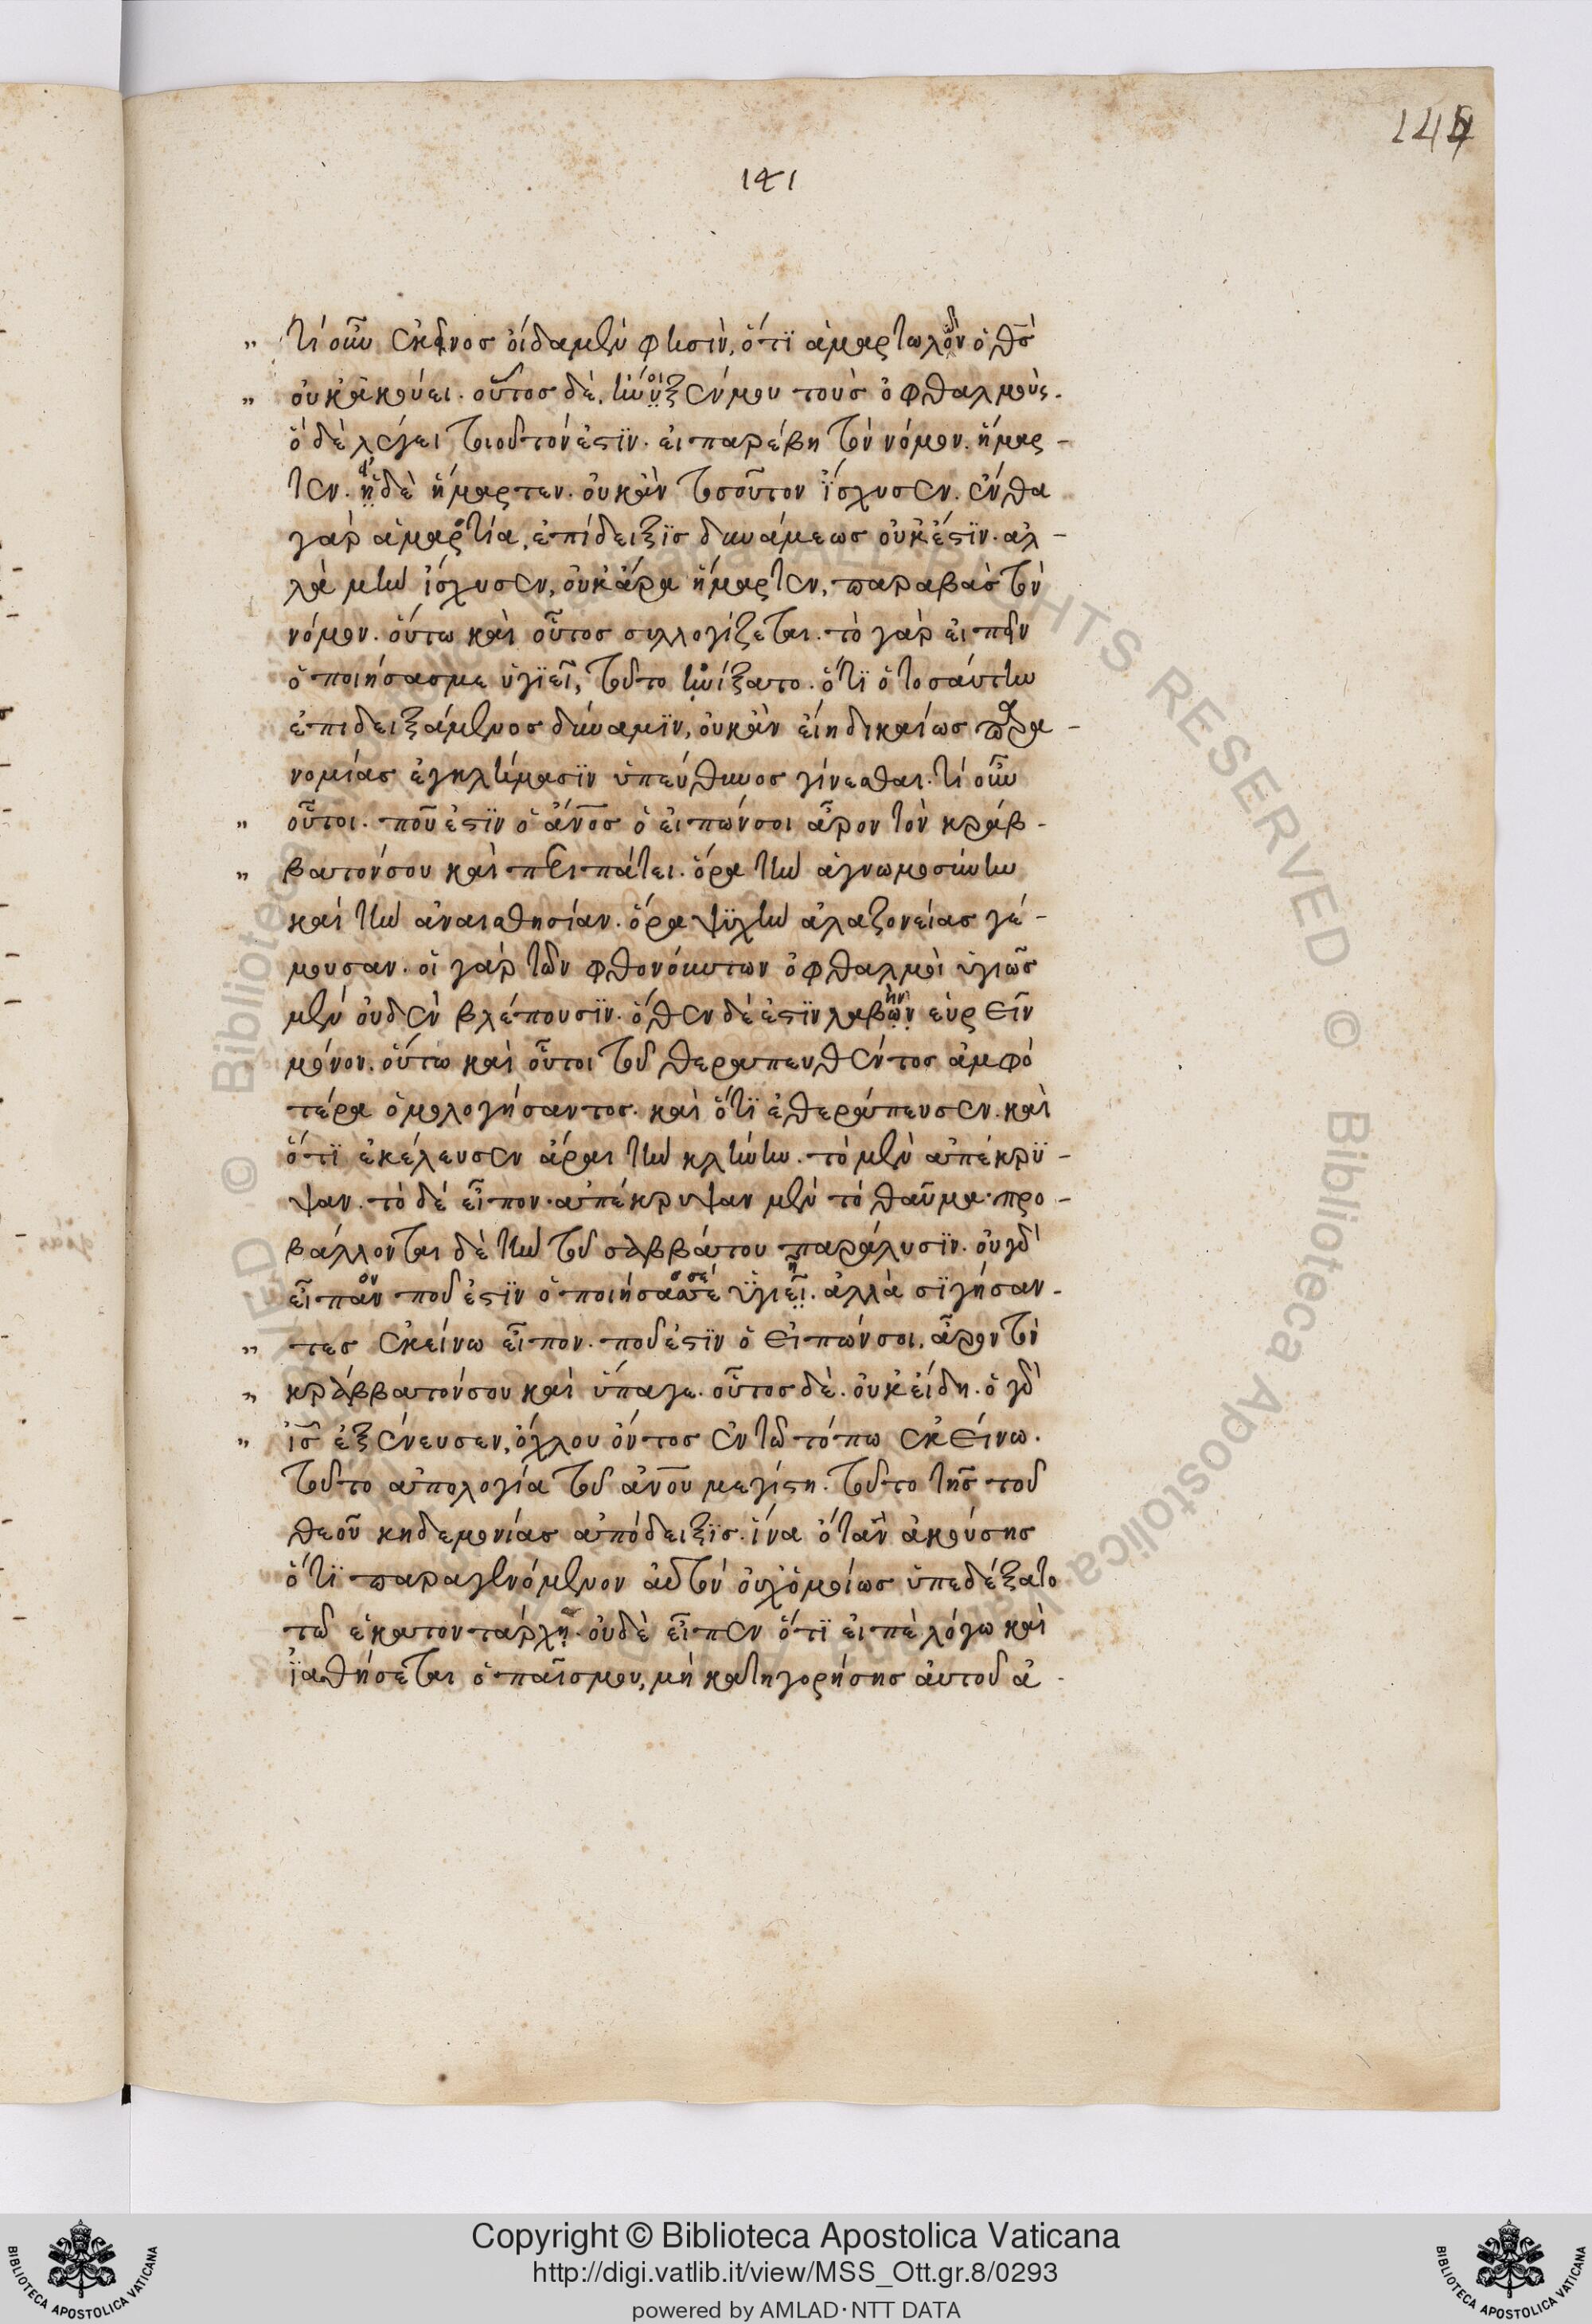 144
141
" τί οὖν ἐκεῖνος οἴδαμεν φησὶν, ὅτϊ ἁμαρτωλῶν ὁ θ̅ς̅
" οὐκ ἀκούει. οὗτος δὲ, ἤνοιξεν μου τοὺς ὀφθαλμοὺς.
ὃ δὲ λέγει τοιοῦτόν ἐστϊν. εἰ παρέβη τὸν νόμον. ἥμαρ-
τεν. εἰ δὲ ἥμαρτεν. οὐκ ἂν τοσοῦτον ἴσχυσεν. ἔνθα
γὰρ ἁμαρτία, ἐπίδειξϊς δυνάμεως οὐκ ἔστϊν. ἀλ-
λὰ μὴν ἴσχυσεν, οὐκ ἄρα ἥμαρτεν, παραβὰς τὸν
νόμον. οὕτω καὶ οὗτος συλλογίζεται. τὸ γὰρ εἰπεῖν
ὁ ποιήσας με ὑγϊεῖ, τοῦτο ἠνίξατο. ὅτϊ ὁ τοσαύτην
ἐπιδειξάμενος δύναμϊν, οὐκ ἂν εἴη δικαίως παρα-
νομίας ἐγκλήμασϊν ὑπεύθυνος γίνεσθαι. τί οὖν
" οὗτοι. ποῦ ἐστϊν ὁ ἄν̅ο̅ς ὁ εἰπών σοι ἆρον τὸν κράβ-
" βατόν σου καὶ περιπάτει. ὅρα τὴν ἀγνωμοσύνην
καὶ τὴν ἀναισθησίαν. ὅρα ψϋχὴν ἀλαζονείας γέ-
μουσαν. οἱ γὰρ τῶν φθονούντων ὀφθαλμοὶ ὑγιῶς
μὲν οὐδὲν βλέπουσϊν. ὅθεν δέ ἐστϊν λαβὴν εὑρεῖν
μόνον. οὕτω καὶ οὗτοι τοῦ θεραπευθέντος ἀμφό
τέρα ὁμολογήσαντος. καὶ ὅτϊ ἐθεράπευσεν. καὶ
ὅτϊ ἐκέλευσεν ἆραι τὴν κλίνην. τὸ μὲν ἀπέκρϋ-
ψαν. τὸ δὲ εἶπον. ἀπέκρυψαν μὲν τὸ θαῦμα. προ-
βάλλονται δὲ τὴν τοῦ σαββάτου παράλυσϊν. οὐ γὰρ
εἶπον ποῦ ἐστϊν ὁ ποιήσας σέ ὑγιῆ. ἀλλὰ σϊγήσαν-
" τες ἐκείνω εἶπον. ποῦ ἐστϊν ὁ εἰπών σοι, ἆρον τὸν
" κράββατόν σου καὶ ὕπαγε. οὗτος δὲ. οὐκ εἴδη. ὁ γὰρ
" ι̅ς̅ ἐξένευσεν, ὄχλου ὄντος ἐν τῶ τόπω ἐκείνω.
τοῦτο ἀπολογία τοῦ ἀν̅ο̅υ μεγίστη. τοῦτο τῆς τοῦ
θεοῦ κηδεμονίας ἀπόδειξϊς. ἵνα ὅταν ἀκούσης
ὅτϊ παραγενόμενον αὐτὸν οὐχ ὁμοίως ὑπεδέξατο
τῶ ἑκατοντάρχη. οὐδὲ εἶπεν ὅτϊ εἰπὲ λόγω καὶ
ἰαθήσεται ὁ παῖς μου, μὴ κατηγορήσης αὐτοῦ ἀ-
Copyright © Biblioteca Apostolica Vaticana
http://digi.vatlib.it/view/MSS_Ott.gr.8/0293
powered by AMLAD·NTT DATA